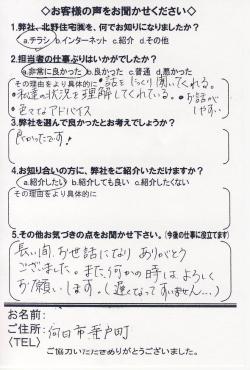 ◇お客様の声をお聞かせください◇
1.弊社、北野住宅㈱を、何でお知りになりましたか?
a.チラシ b.インターネット c.紹介 d.その他
2.担当者の仕事ぶりはいかがでしたか?
a.非常に良かった b.良かった c.普通 d.悪かった
その理由をより具体的に ・話をじっくり聞いてくれる。
・私達の状況を理解してくれている。 ・お話が
・色々なアドバイス しやすい
3.弊社を選んで良かったとお考えでしょうか?
良かったです!
4.お知り合いの方に、弊社をご紹介いただけますか?
a.紹介したい b.紹介しても良い c.紹介したくない
その理由をより具体的に
5.その他お気づきの点をお聞かせ下さい。(今後の仕事に役立てます)
長い間、お世話になり ありがとう
ございました。また、何かの時は、よろしく
お願いします。(遅くなってすいません…)
お名前:
ご住所:向日市寺戸町
〈TEL〉
ご協力いただきありがとうございました。